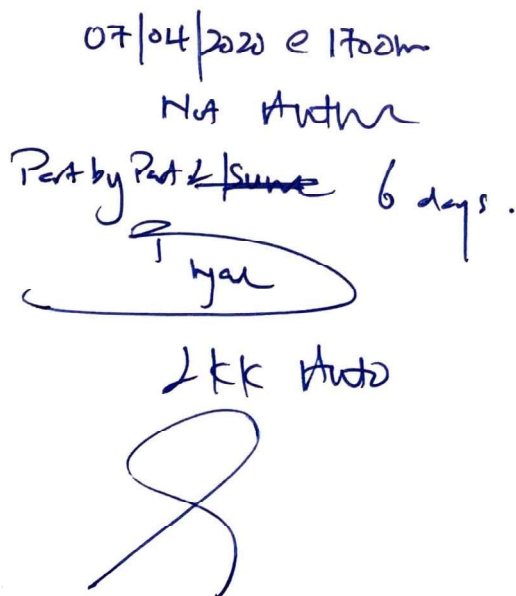 07/04/2020 @ 1700hr
Not Author
Part by Part
6 days.
LKK Auto